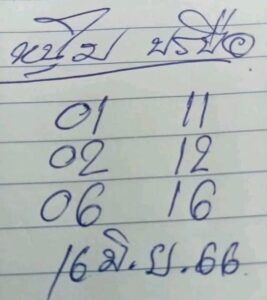 หนุ่ม บุรีรัมย์
01 11
02 12
06 16
16 มิ.ย.66